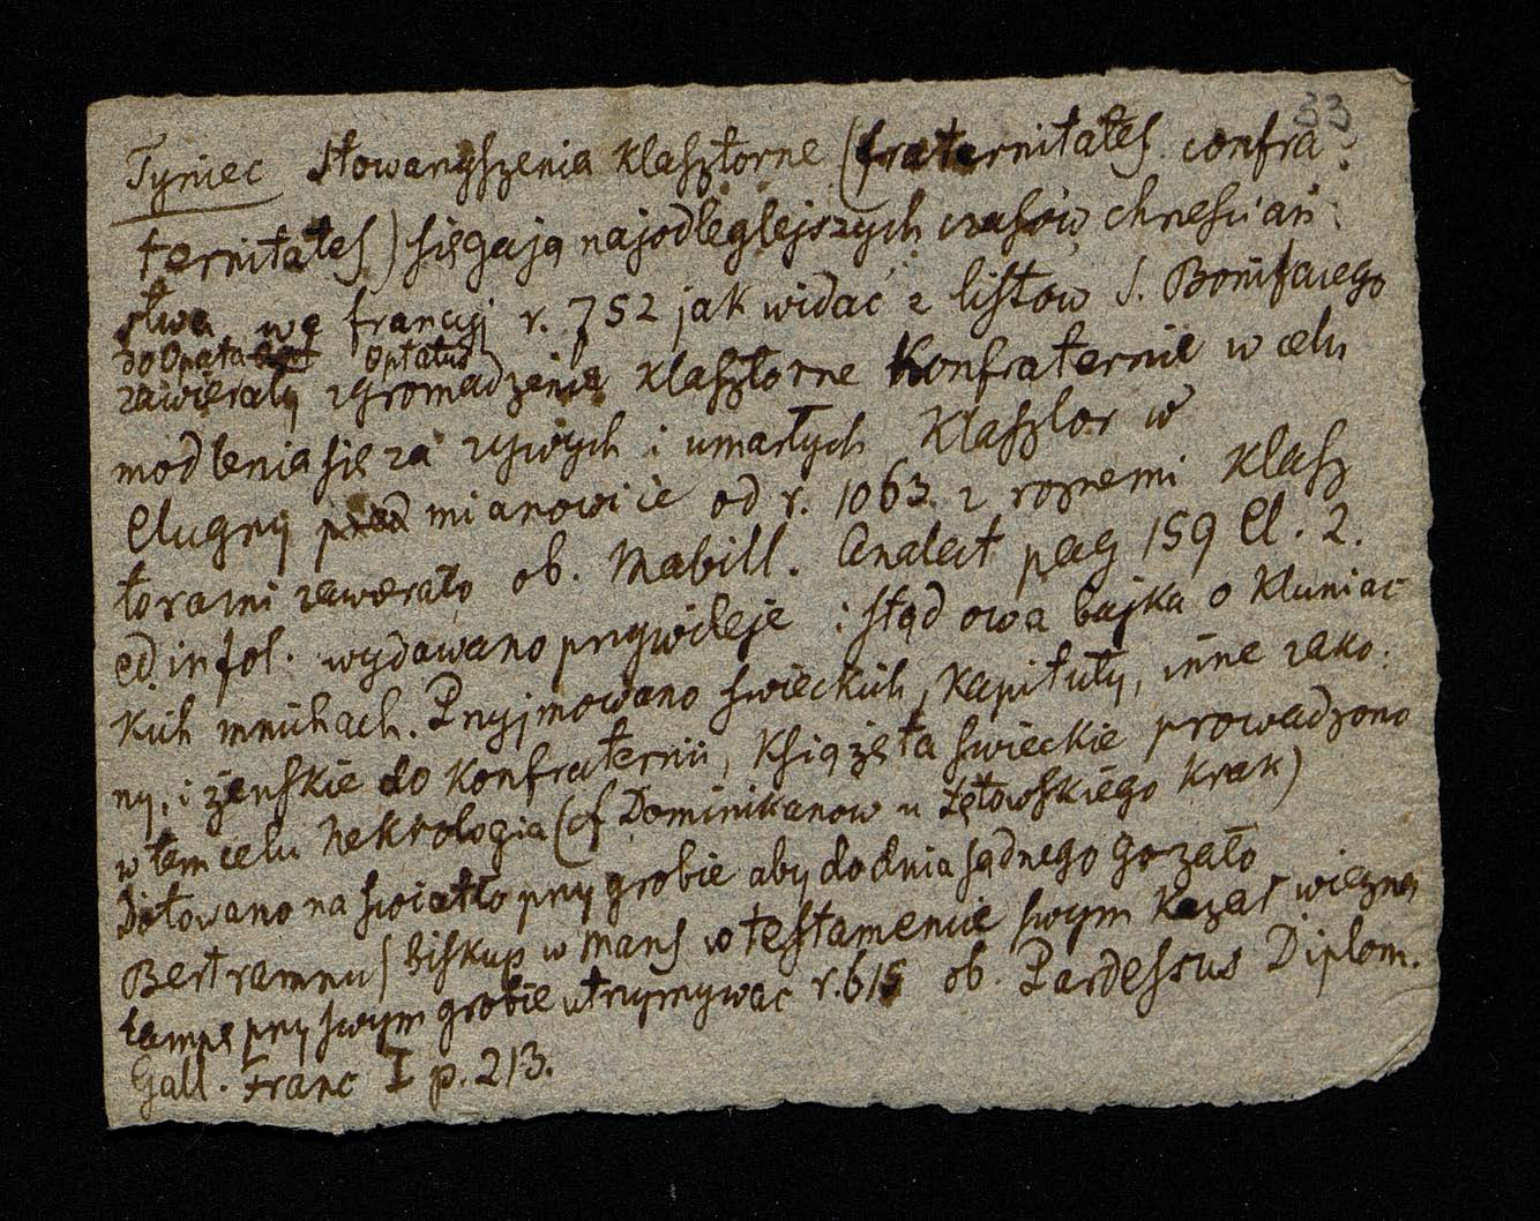 33
Tyniec Stowarzyszenia klasztorne (fraternitates confra
ternitates) sięgają najodleglejszych czasów chrześciań
stwa we francyj r. 752 jak widać z listow S. Bonifacego
do Opata Optatus
zawierały zgromadzenia klasztorne Konfraternie w celu
modlenia się za zywych i umarłych Klasztor w
Clugny mianowicie od r. 1063. z roznemi klasz
torami zawerało ob. Mabill. Analect pag 159 Cl. 2.
ed. infol. wydawano przywileje : stąd owa bajka o Kluniac
kich mnichach. Przyjmowano swieckich, Kapituły, inne zako:
ny, i żenskie do Konfraternii, Książęta swieckie prowadzono
w tem celu Nekrologia (cf Dominikanow u Łętowskiego Krak)
Dotowano na swiatło przy grobie aby do dnia sądnego gorzało
Bertramnus biskup w Mans w testamencie swym kazał wieczną
lampę przy swym grobie utrzymywac r. 615 ob. Pardessus Diplom.
Gall. Franc I p. 213.